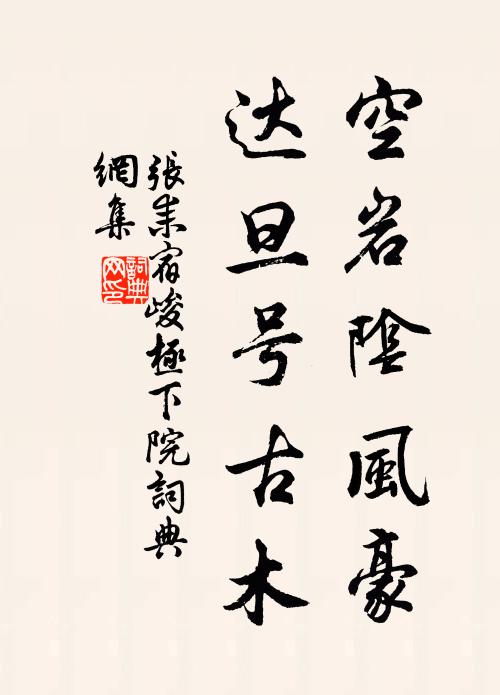 空岩陰風豪
达旦号古木
張耒宿峻極下院詞典
網集
詞典網印